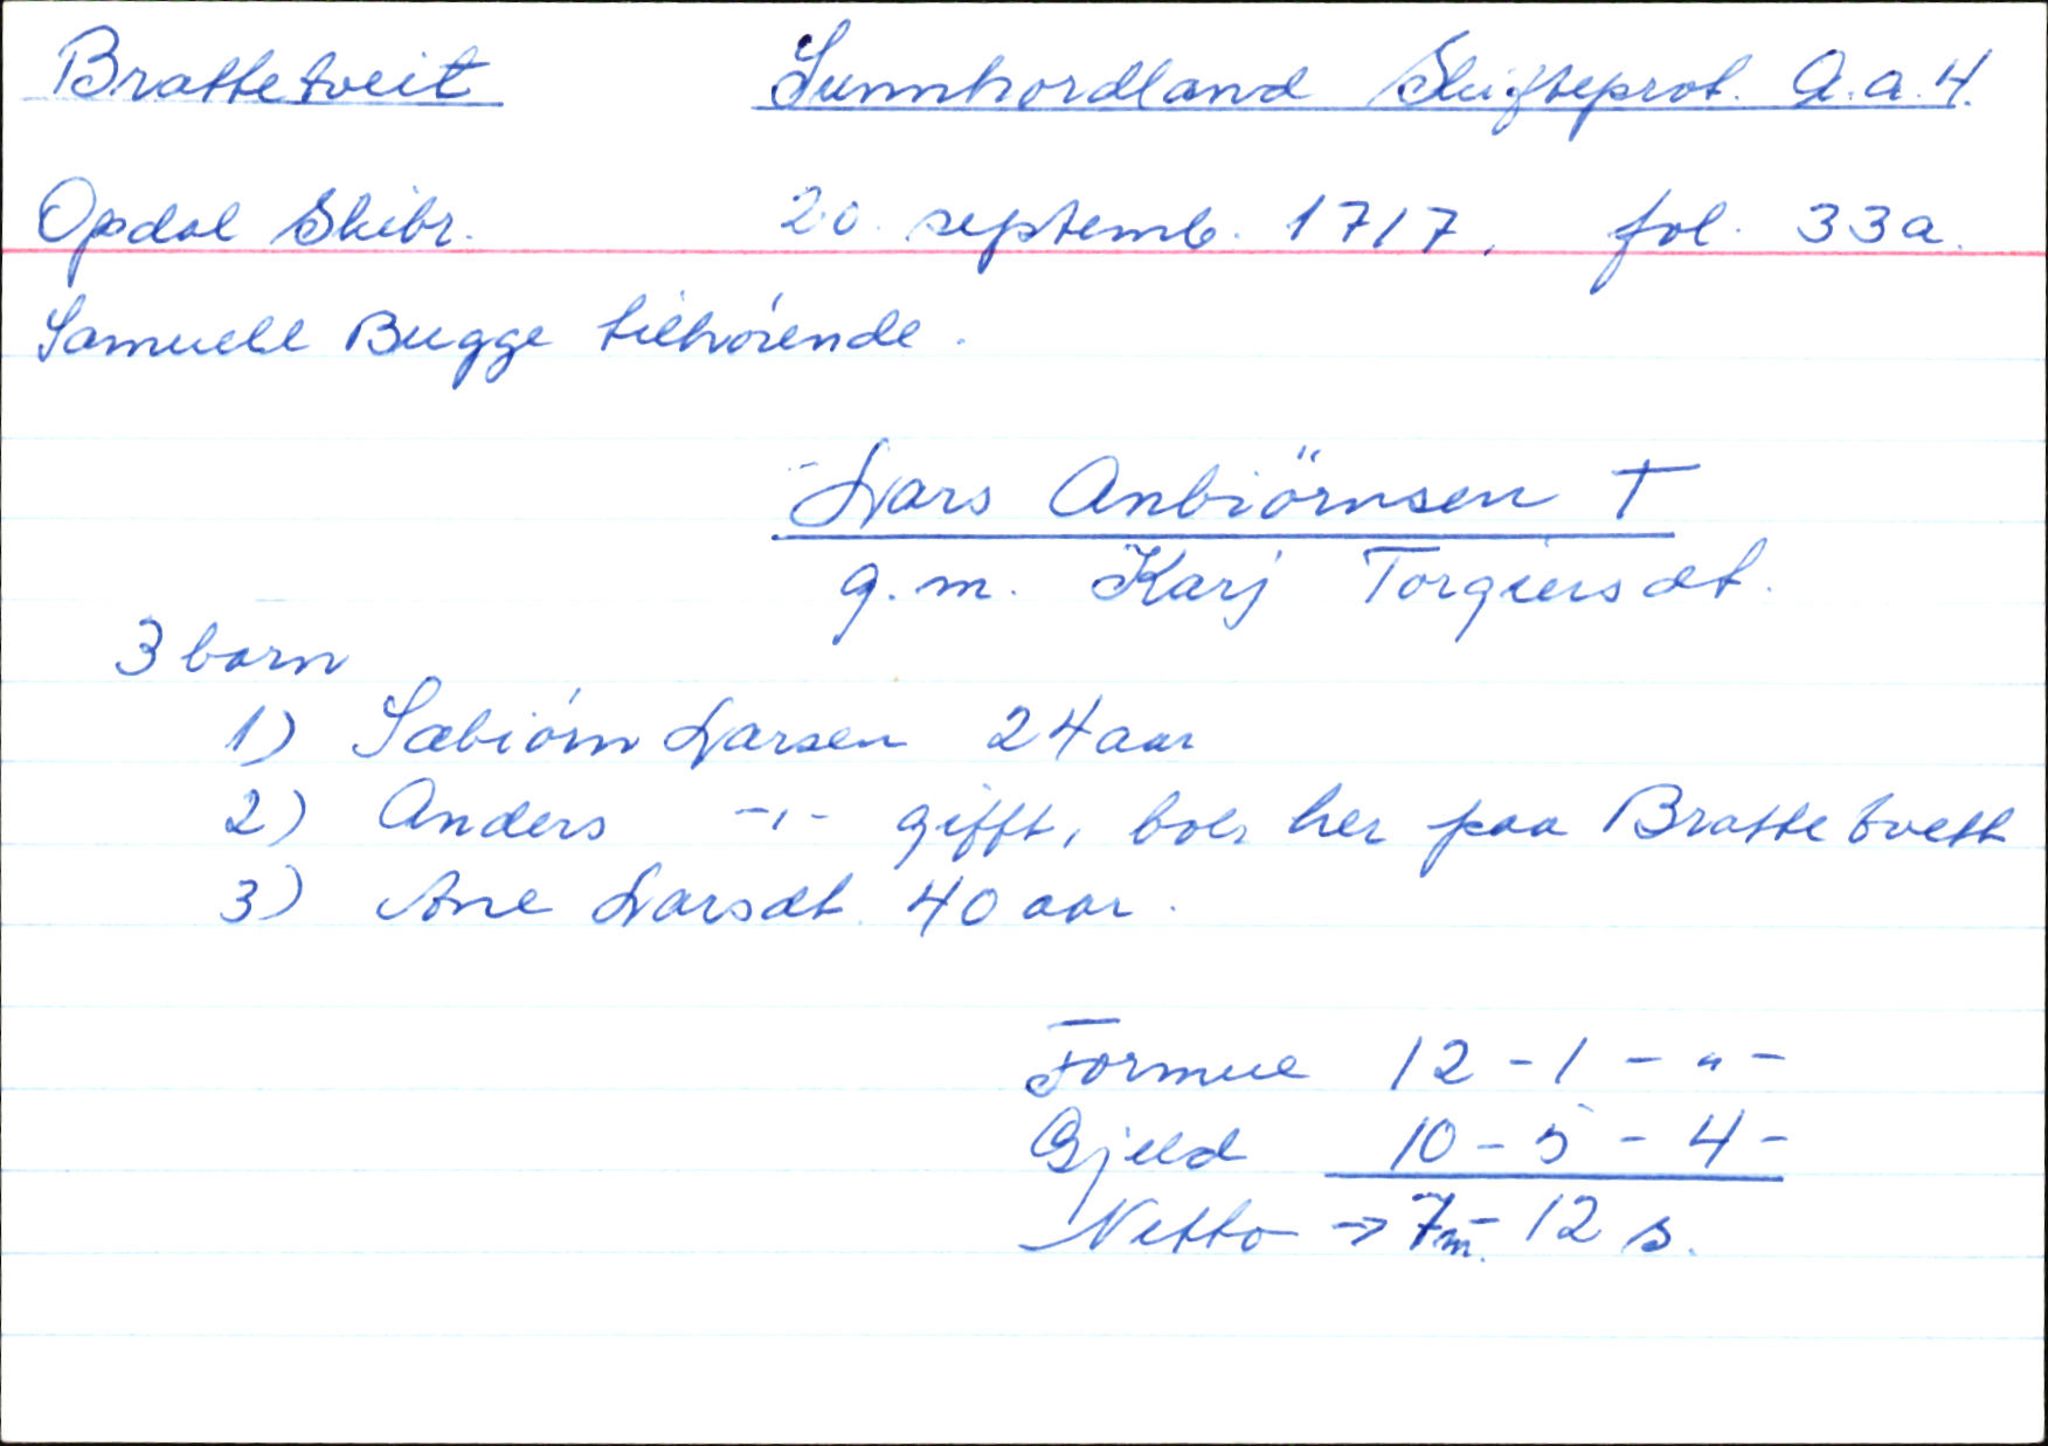 Brattetveit Sunnhordland Skifteprot. A.a.4.
Opdal Skibr. 20. septemb. 1717, fol. 33a.
Samuell Bugge tilhørende.
Lars Anbiörnsen †
g.m. Karj Torgiersdt.
3 born
1) Sæbiórn Larsen 24 aar
2) Anders -"- gifft, boer her paa Brattetvett
3) Ane Larsdt. 40 aar.
Formue 12 - 1 - " -
Gjeld 10 - 5 - 4 -
Netto → 7m. - 12 s.